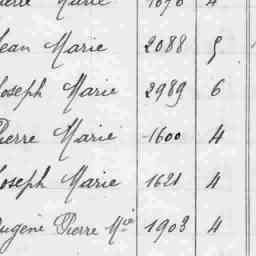 Marie 1676 4
Jean Marie 2088 5
Joseph Marie 2989 6
Pierre Marie 1600 4
Joseph Marie 1621 4
Eugène Pierre Mie 1903 4